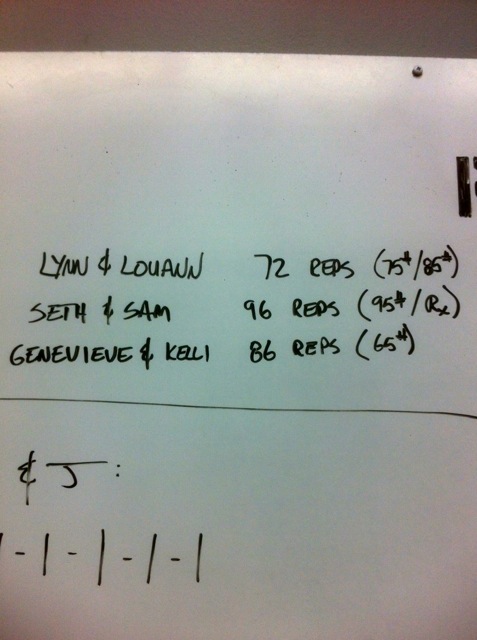 LYNN & LOUANN 72 REPS (75#/85#)
SETH & SAM 96 REPS (95#/Rx)
GENEVIEVE & KELLI 86 REPS (65#)
& J:
1-1-1-1-1